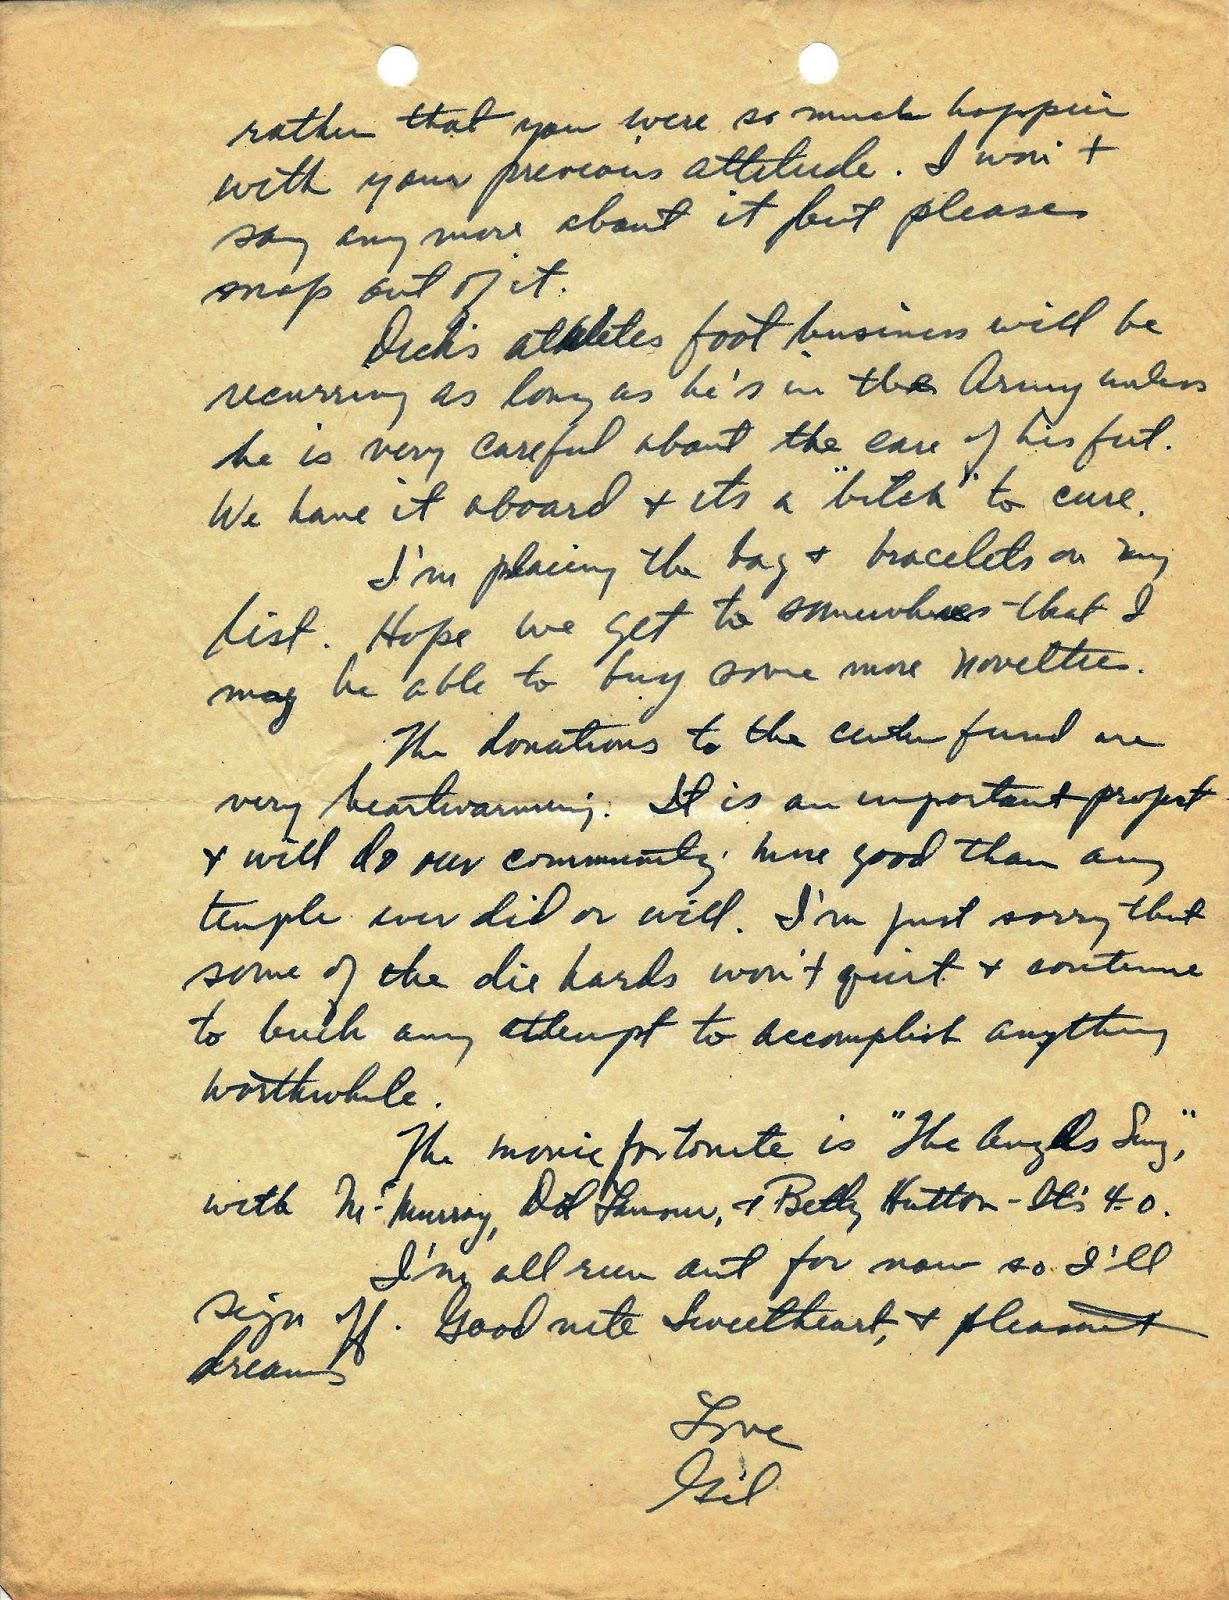 rather that you were so much happier
with your previous attitude. I won't
say any more about it but please
snap out of it.
Dick's athletes foot business will be
recurring as long as he's in the Army unless
he is very careful about the care of his feet.
We have it aboard + its a "bitch" to cure.
I'm placing the bag + bracelets on my
list. Hope we get to somewheres that I
may be able to buy some more novelties.
The donations to the center fund are
very heartwarming. It is an important project
+ will do our community more good than any
temple ever did or will. I'm just sorry that
some of the die hards won't quit + continue
to buck any attempt to accomplish anything
worthwhile.
The movie for tonite is "The Angels Sing",
with McMurray, Dot Lamour, + Betty Hutton - It's 4.0.
I'm all run out for now so I'll
sign off. Good nite Sweetheart, + pleasant
dreams
Love
Gil